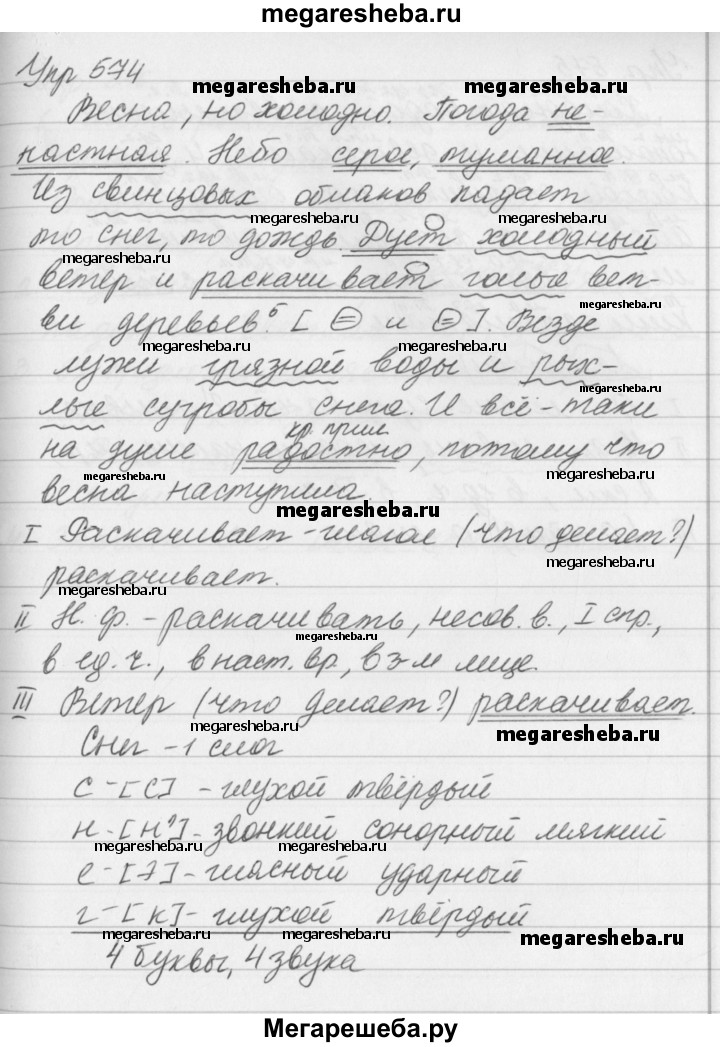 megaresheba.ru
Упр 574
megaresheba.ru
megaresheba.ru
Весна, но холодно. Погода не-
настная. Небо серое, туманное.
megaresheba.ru
Из свинцовых облаков падает
megaresheba.ru
megaresheba.ru
то снег, то дождь. Дует холодный
megaresheba.ru
ветер и раскачивает голые вет-
megaresheba.ru
ви деревьев.⁵ [ = и = ]. Везде
megaresheba.ru
megaresheba.ru
лужи грязной воды и рых-
megaresheba.ru
лые сугробы снега. И всё-таки
кр. прил.
на душе радостно, потому что
megaresheba.ru
megaresheba.ru
весна наступила.
megaresheba.ru
I Раскачивает - глагол (что делает?)
megaresheba.ru
раскачивает.
II Н. ф. - раскачивать, несов. в., I спр.,
megaresheba.ru
в ед. ч., в наст. вр., в 3-м лице.
III Ветер (что делает?) раскачивает.
megaresheba.ru
megaresheba.ru
Снег - 1 слог
с - [с] - глухой твёрдый
н - [н'] - звонкий сонорный мягкий
megaresheba.ru
megaresheba.ru
е - [э] - гласный ударный
г - [к] - глухой твёрдый
megaresheba.ru
megaresheba.ru
megaresheba.ru
4 буквы, 4 звука
Мегарешеба.ру